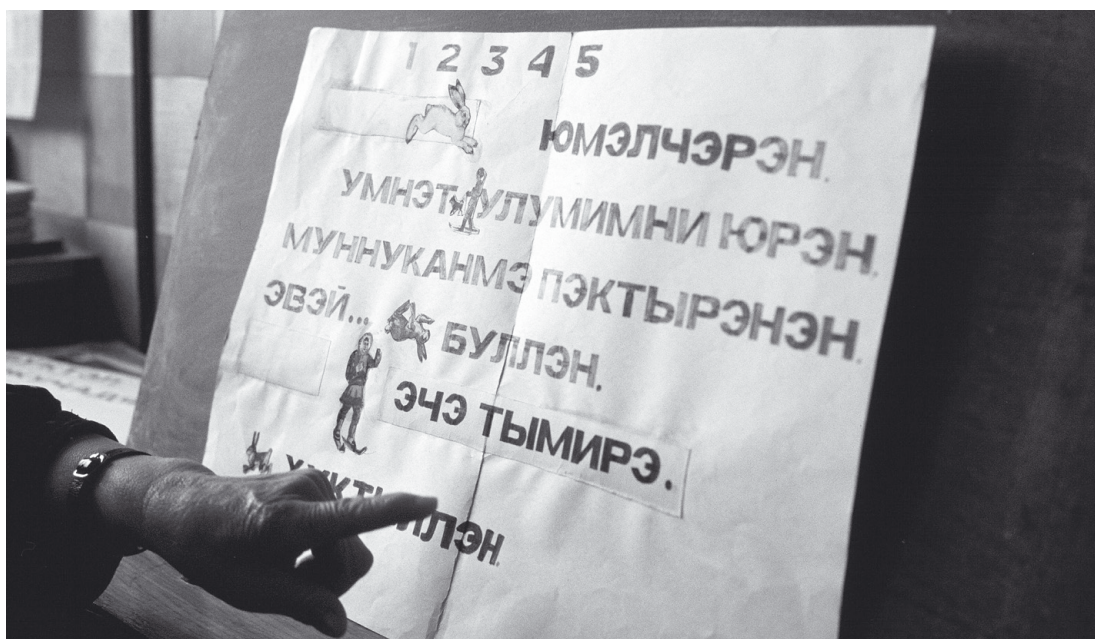 1 2 3 4 5
ЮМЭЛЧЭРЭН.
УМНЭТ УЛУМИМНИ ЮРЭН.
МУННУКАНМЭ ПЭКТЫРЭНЭН.
ЭВЭЙ... БУЛЛЭН.
ЭЧЭ ТЫМИРЭ.